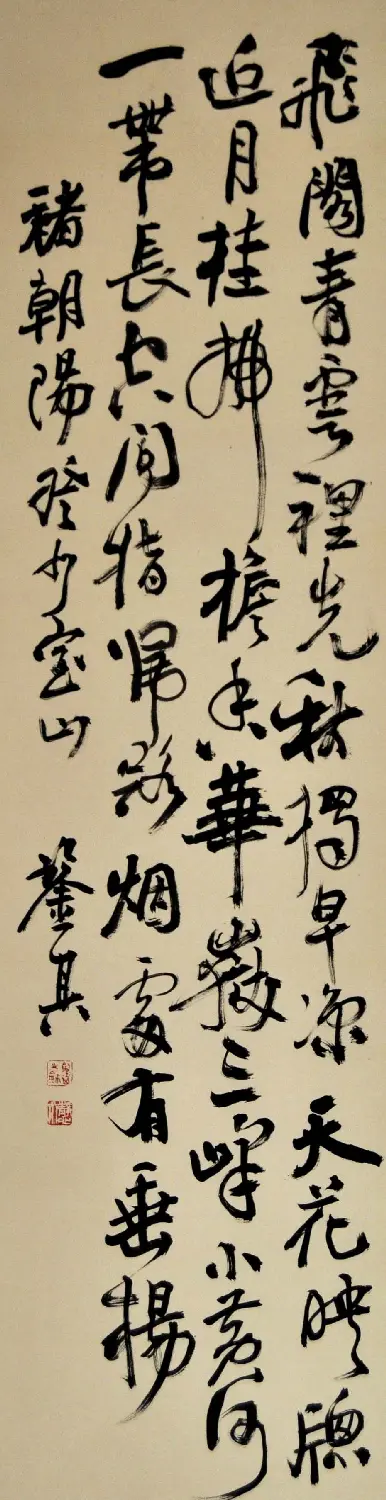 飛閣青雲裡先秋獨早涼天花映牕
近月桂拂檐香華嶽三峰小黃河
一帶長空間指歸路烟處有垂楊
褚朝陽登少室山 其